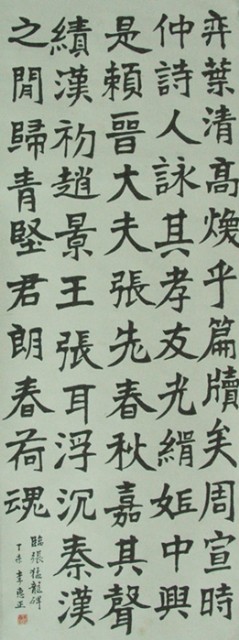 弈葉清高煥乎篇牘矣周宣時
仲詩人詠其孝友光緝姬中興
是賴晉大夫張老春秋嘉其聲
績漢初趙景王張耳浮沉秦漢
之閒歸青堅君朗春荷魂
臨張猛龍碑
丁亥李正